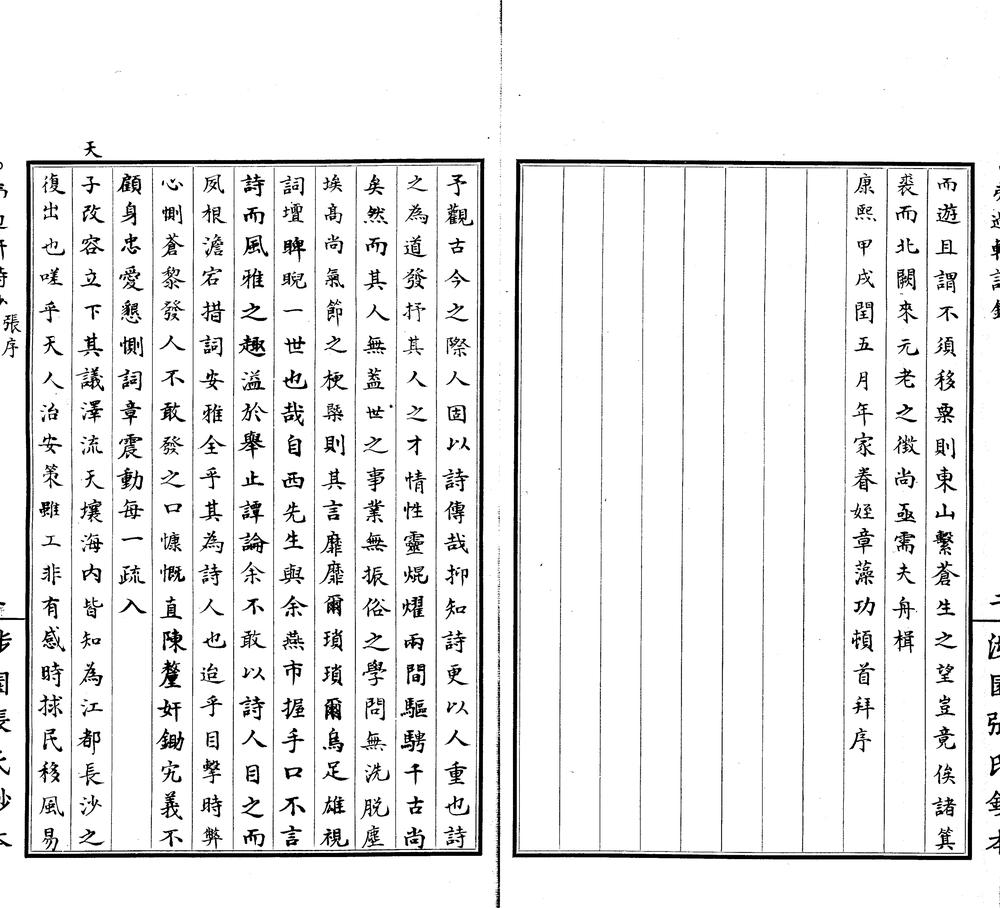 而遊且謂不須移粟則東山繫蒼生之望豈竟俟諸箕
裘而北闕來元老之徵尚亟需夫舟楫
康熙甲戌閏五月年家眷姪章藻功頓首拜序
予觀古今之際人固以詩傳哉抑知詩更以人重也詩
之為道發抒其人之才情性靈焜燿兩間驅騁千古尚
矣然而其人無蓋世之事業無振俗之學問無洗脱塵
埃高尚氣節之梗槩則其言靡靡爾瑣瑣爾烏足雄視
詞壇睥睨一世也哉自西先生與余燕市握手口不言
詩而風雅之趣溢於舉止譚論余不敢以詩人目之而
夙根澹宕措詞安雅全乎其為詩人也迨乎目擊時弊
心惻蒼黎發人不敢發之口慷慨直陳釐奸鋤宄義不
顧身忠愛懇惻詞章震動每一疏入
天
子改容立下其議澤流天壤海内皆知為江都長沙之
復出也嗟乎天人治安策雖工非有感時捄民移風易
張序